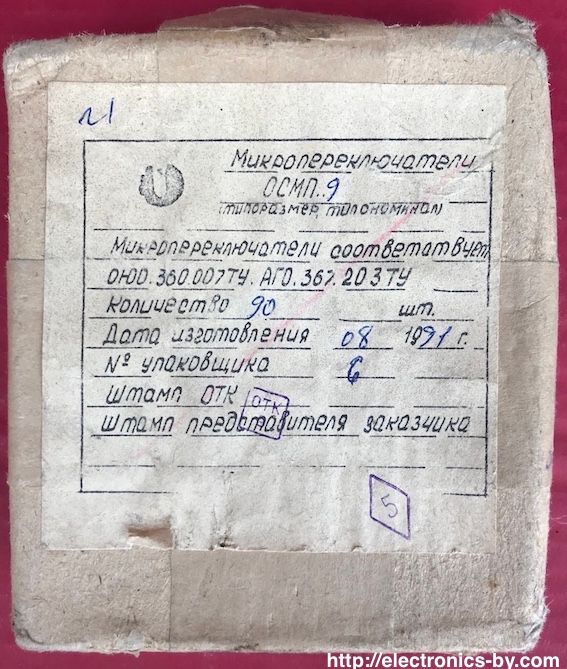 Микропереключатели
ОСМП. 9
(типоразмер, типономинал)
Микропереключатели соответатвует
ОЮО.360.007ТУ. АГО.367.203ТУ
Количество 90 шт.
Дата изготовления 08 1991 г.
№ упаковщика 6
Штамп ОТК
ОТК
Штамп представителя заказчика
5
http://electronics-by.com